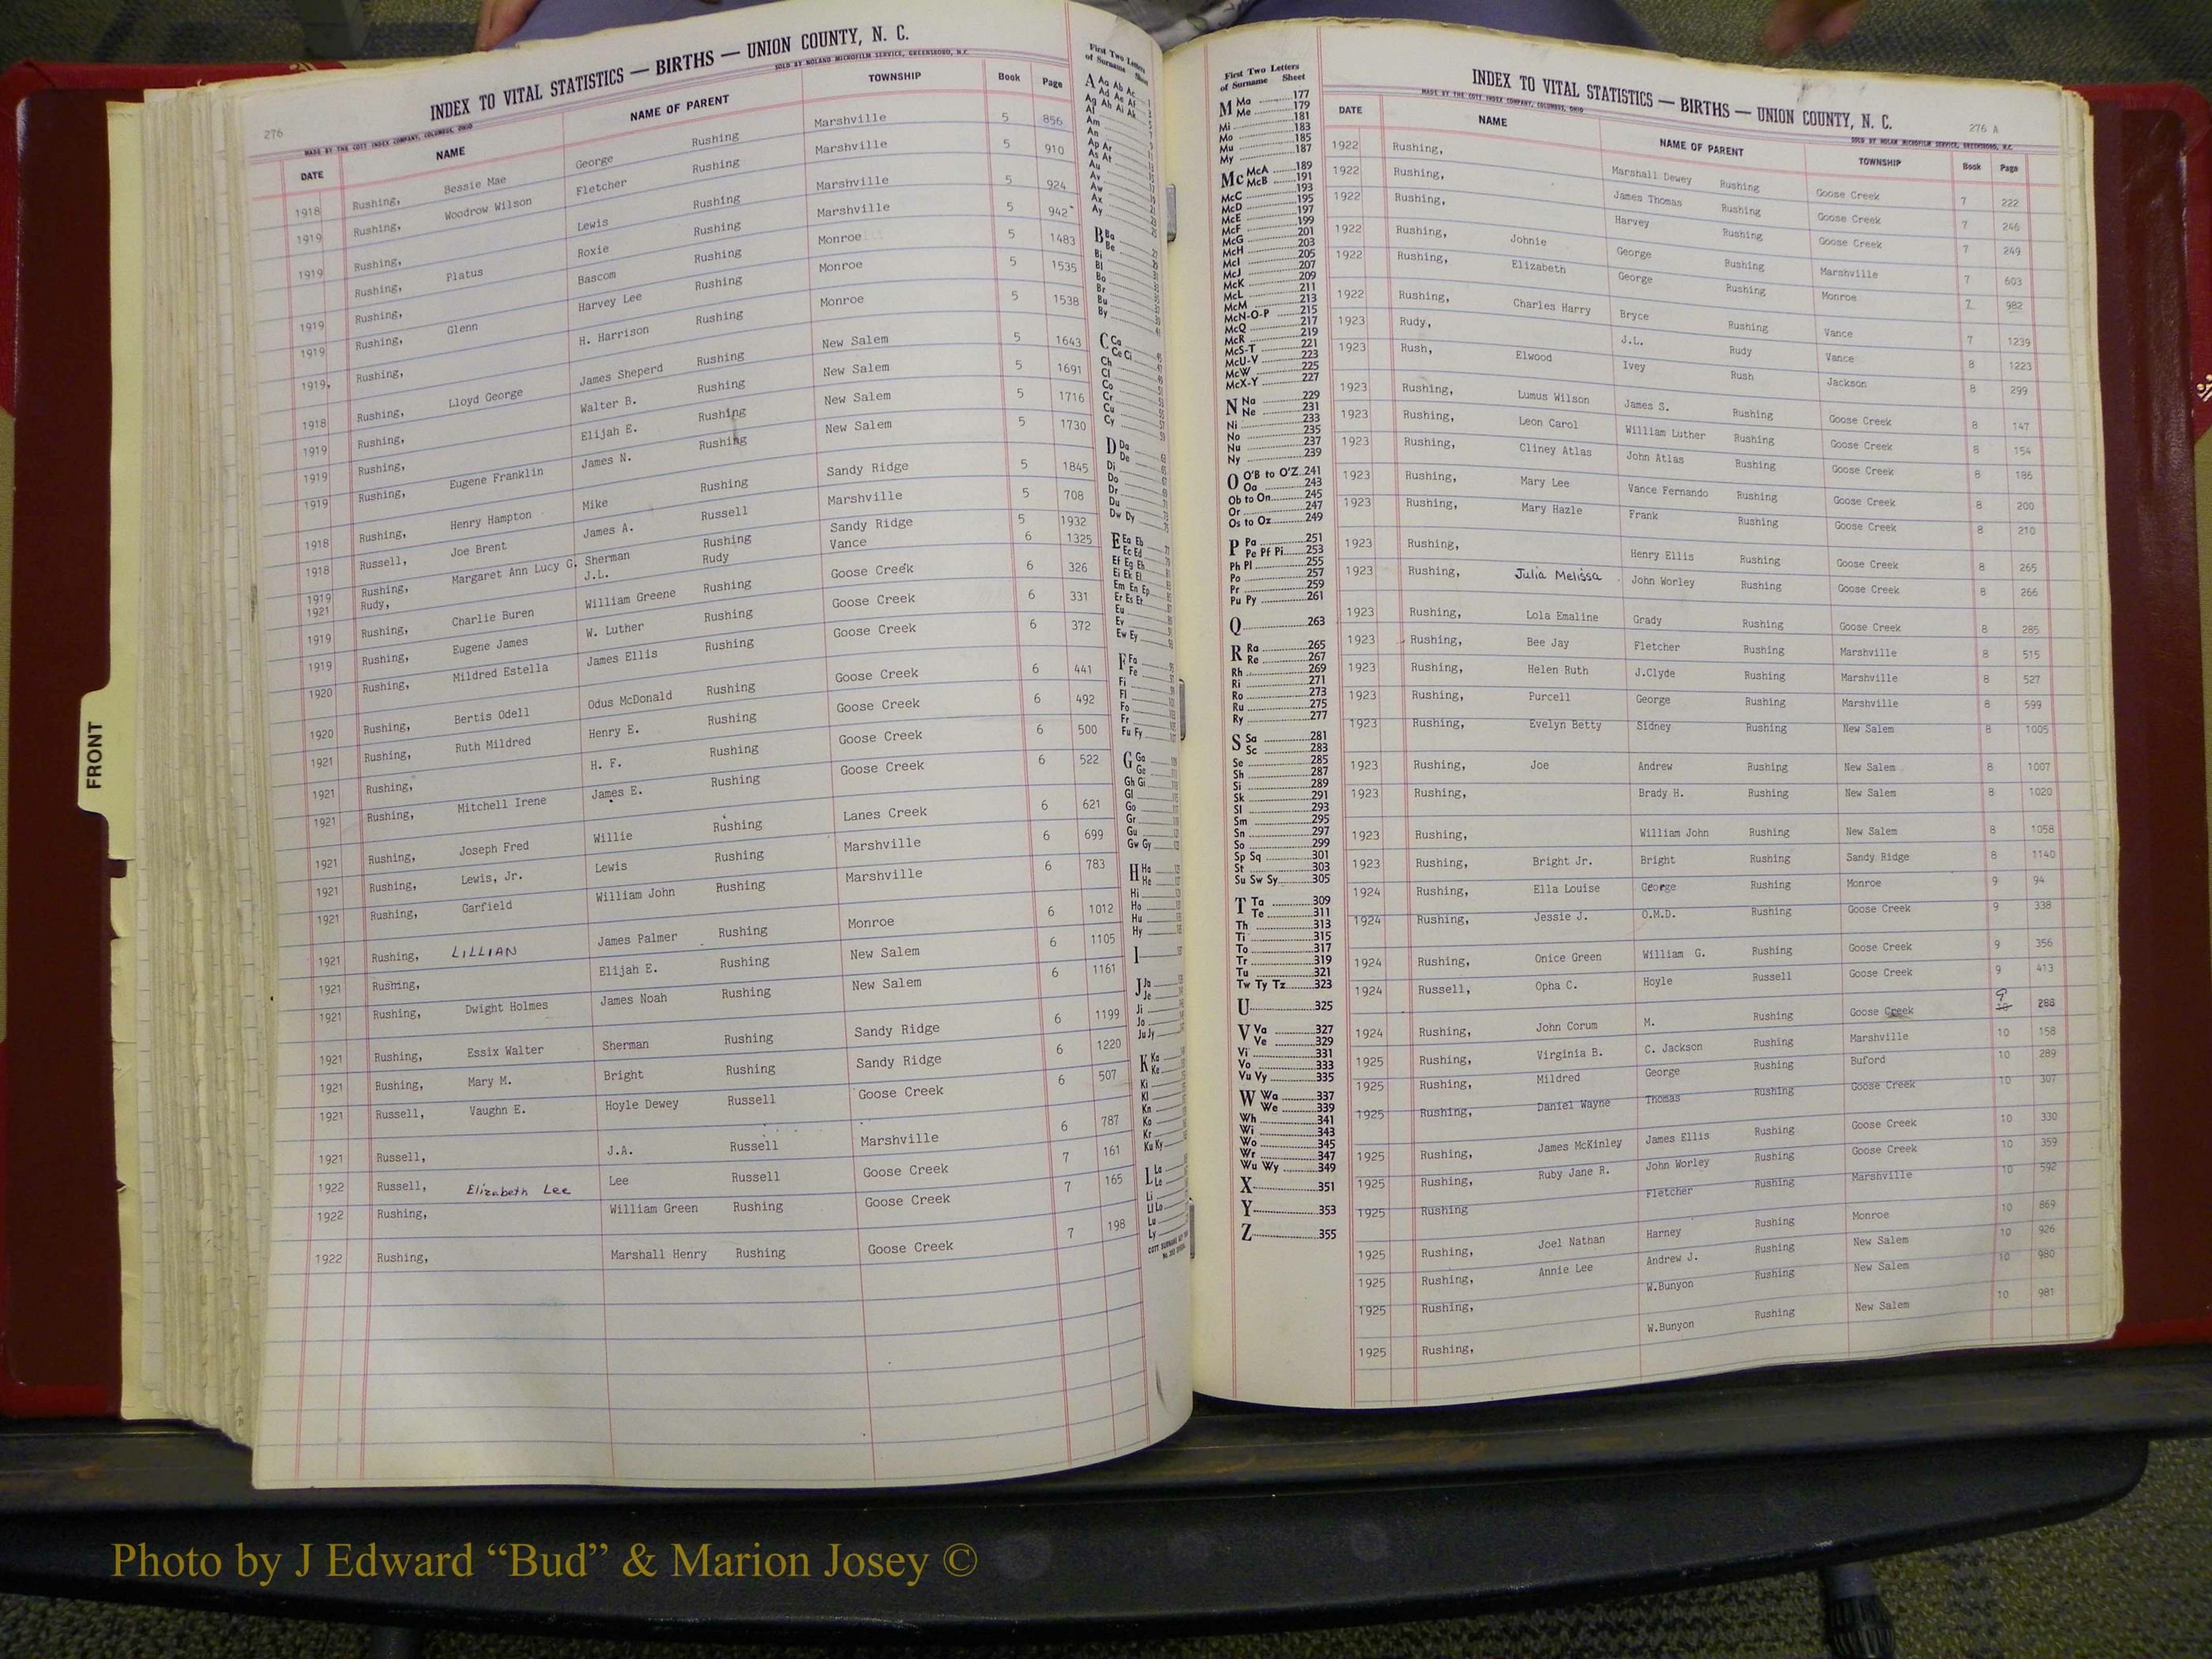 INDEX TO VITAL STATISTICS — BIRTHS — UNION COUNTY, N. C.
MADE BY THE COTT INDEX COMPANY, COLUMBUS, OHIO SOLD BY NOLAND MICROFILM SERVICE, GREENSBORO, N.C.
276
DATE NAME NAME OF PARENT TOWNSHIP Book Page
1918 Rushing, Bessie Mae George Rushing Marshville 5 856
1919 Rushing, Woodrow Wilson Fletcher Rushing Marshville 5 910
1919 Rushing, Lewis Rushing Marshville 5 924
Rushing, Platus Roxie Rushing Marshville 5 942
1919 Rushing, Bascom Rushing Monroe 5 1483
1919 Rushing, Glenn Harvey Lee Rushing Monroe 5 1535
1919. Rushing, H. Harrison Rushing Monroe 5 1538
1918 Rushing, Lloyd George James Sheperd Rushing New Salem 5 1643
1919 Rushing, Walter B. Rushing New Salem 5 1691
1919 Rushing, Elijah E. Rushing New Salem 5 1716
1919 Rushing, Eugene Franklin James N. Rushing New Salem 5 1730
1918 Rushing, Henry Hampton Mike Rushing Sandy Ridge 5 1845
1918 Russell, Joe Brent James A. Russell Marshville 5 708
1919 Rushing, Margaret Ann Lucy G. Sherman Rushing Sandy Ridge 5 1932
1921 Rudy, J.L. Rudy Vance 6 1325
1919 Rushing, Charlie Buren William Greene Rushing Goose Creek 6 326
1919 Rushing, Eugene James W. Luther Rushing Goose Creek 6 331
1920 Rushing, Mildred Estella James Ellis Rushing Goose Creek 6 372
1920 Rushing, Bertis Odell Odus McDonald Rushing Goose Creek 6 441
1921 Rushing, Ruth Mildred Henry E. Rushing Goose Creek 6 492
1921 Rushing, H. F. Rushing Goose Creek 6 500
1921 Rushing, Mitchell Irene James E. Rushing Goose Creek 6 522
1921 Rushing, Joseph Fred Willie Rushing Lanes Creek 6 621
1921 Rushing, Lewis, Jr. Lewis Rushing Marshville 6 699
1921 Rushing, Garfield William John Rushing Marshville 6 783
1921 Rushing, LILLIAN James Palmer Rushing Monroe 6 1012
1921 Rushing, Elijah E. Rushing New Salem 6 1105
1921 Rushing, Dwight Holmes James Noah Rushing New Salem 6 1161
1921 Rushing, Essix Walter Sherman Rushing Sandy Ridge 6 1199
1921 Rushing, Mary M. Bright Rushing Sandy Ridge 6 1220
1921 Russell, Vaughn E. Hoyle Dewey Russell Goose Creek 6 507
1921 Russell, J.A. Russell Marshville 6 787
1922 Russell, Elizabeth Lee Lee Russell Goose Creek 7 161
1922 Rushing, William Green Rushing Goose Creek 7 165
1922 Rushing, Marshall Henry Rushing Goose Creek 7 198
First Two Letters
of Surname Sheet
A Aa Ab Ac
Ad Ae Af
Ag Ah Ai Ak
Al
Am
An
Ap Ar
As At
Au
Av
Aw
Ax
Ay
B Ba
Be
Bi
Bl
Bo
Br
Bu
By
C Ca
Ce Ci
Ch
Cl
Co
Cr
Cu
Cy
D Da
De
Di
Do
Dr
Du
Dw Dy
E Ea Eb
Ec Ed
Ef Eg Eh
Ei Ek El
Em En Ep
Er Es Et
Eu
Ev
Ew Ey
F Fa
Fe
Fi
Fl
Fo
Fr
Fu Fy
G Ga
Ge
Gh Gi
Gl
Go
Gr
Gu
Gw Gy
H Ha
He
Hi
Ho
Hu
Hy
I
J Ja
Je
Ji
Jo
Ju Jy
K Ka
Ke
Ki
Kl
Kn
Ko
Kr
Ku Ky
L La
Le
Li
Ll Lo
Lu
Ly
First Two Letters
of Surname Sheet
M Ma 177
Me 179
Mi 181
Mo 183
Mu 185
My 187
Mc McA 189
McB 191
McC 193
McD 195
McE 197
McF 199
McG 201
McH 203
McI 205
McJ 207
McK 209
McL 211
McM 213
McN-O-P 215
McQ 217
McR 219
McS-T 221
McU-V 223
McW 225
McX-Y 227
N Na 229
Ne 231
Ni 233
No 235
Nu 237
Ny 239
O O'B to O'Z 241
Oa 243
Ob to On 245
Or 247
Os to Oz 249
P Pa 251
Pe Pf Pi 253
Ph Pl 255
Po 257
Pr 259
Pu Py 261
Q 263
R Ra 265
Re 267
Rh 269
Ri 271
Ro 273
Ru 275
Ry 277
S Sa 281
Sc 283
Se 285
Sh 287
Si 289
Sk 291
Sl 293
Sm 295
Sn 297
So 299
Sp Sq 301
St 303
Su Sw Sy 305
T Ta 309
Te 311
Th 313
Ti 315
To 317
Tr 319
Tu 321
Tw Ty Tz 323
U 325
V Va 327
Ve 329
Vi 331
Vo 333
Vu Vy 335
W Wa 337
We 339
Wh 341
Wi 343
Wo 345
Wr 347
Wu Wy 349
X 351
Y 353
Z 355
INDEX TO VITAL STATISTICS — BIRTHS — UNION COUNTY, N. C.
MADE BY THE COTT INDEX COMPANY, COLUMBUS, OHIO SOLD BY NOLAN MICROFILM SERVICE, GREENSBORO, N.C.
276 A
DATE NAME NAME OF PARENT TOWNSHIP Book Page
1922 Rushing, Marshall Dewey Rushing Goose Creek 7 222
1922 Rushing, James Thomas Rushing Goose Creek 7 246
1922 Rushing, Harvey Rushing Goose Creek 7 249
1922 Rushing, Johnie George Rushing Marshville 7 603
1922 Rushing, Elizabeth George Rushing Monroe 7 982
1922 Rushing, Charles Harry Bryce Rushing Vance 7 1239
1923 Rudy, J.L. Rudy Vance 8 1223
1923 Rush, Elwood Ivey Rush Jackson 8 299
1923 Rushing, Lumus Wilson James S. Rushing Goose Creek 8 147
1923 Rushing, Leon Carol William Luther Rushing Goose Creek 8 154
1923 Rushing, Cliney Atlas John Atlas Rushing Goose Creek 8 186
1923 Rushing, Mary Lee Vance Fernando Rushing Goose Creek 8 200
1923 Rushing, Mary Hazle Frank Rushing Goose Creek 8 210
1923 Rushing, Henry Ellis Rushing Goose Creek 8 265
1923 Rushing, Julia Melissa John Worley Rushing Goose Creek 8 266
1923 Rushing, Lola Emaline Grady Rushing Goose Creek 8 285
1923 Rushing, Bee Jay Fletcher Rushing Marshville 8 515
1923 Rushing, Helen Ruth J.Clyde Rushing Marshville 8 527
1923 Rushing, Purcell George Rushing Marshville 8 599
1923 Rushing, Evelyn Betty Sidney Rushing New Salem 8 1005
1923 Rushing, Joe Andrew Rushing New Salem 8 1007
1923 Rushing, Brady H. Rushing New Salem 8 1020
1923 Rushing, William John Rushing New Salem 8 1058
1923 Rushing, Bright Jr. Bright Rushing Sandy Ridge 8 1140
1924 Rushing, Ella Louise George Rushing Monroe 9 94
1924 Rushing, Jessie J. O.M.D. Rushing Goose Creek 9 338
1924 Rushing, Onice Green William G. Rushing Goose Creek 9 356
1924 Russell, Opha C. Hoyle Russell Goose Creek 9 413
1924 Rushing, John Corum M. Rushing Goose Creek 9 10 288
1925 Rushing, Virginia B. C. Jackson Rushing Marshville 10 158
1925 Rushing, Mildred George Rushing Buford 10 289
1925 Rushing, Daniel Wayne Thomas Rushing Goose Creek 10 307
1925 Rushing, James McKinley James Ellis Rushing Goose Creek 10 330
1925 Rushing, Ruby Jane R. John Worley Rushing Goose Creek 10 359
1925 Rushing Fletcher Rushing Marshville 10 592
1925 Rushing, Joel Nathan Harney Rushing Monroe 10 869
1925 Rushing, Annie Lee Andrew J. Rushing New Salem 10 926
1925 Rushing, W.Bunyon Rushing New Salem 10 980
1925 Rushing, W.Bunyon Rushing New Salem 10 981
FRONT
Photo by J Edward “Bud” & Marion Josey ©